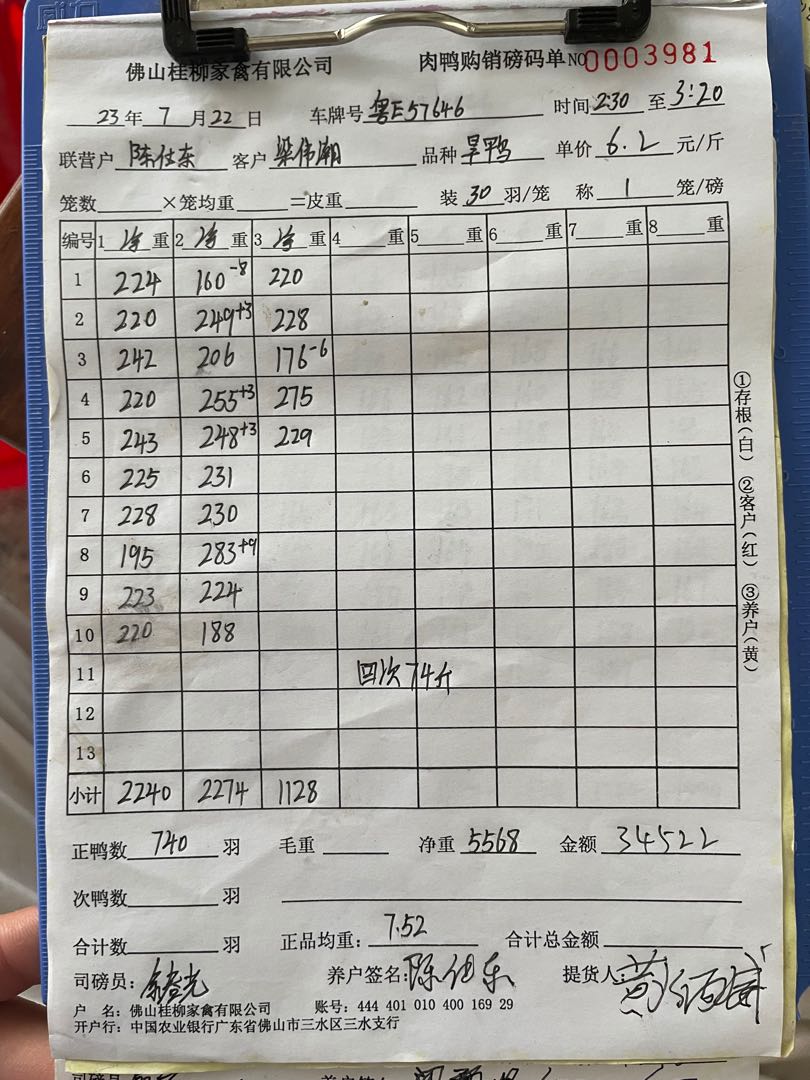 佛山桂柳家禽有限公司 肉鸭购销磅码单 NO 0003981
23年 7月22日 车牌号 粤E57646 时间 2:30 至 3:20
联营户 陈仕东 客户 梁伟潮 品种 旱鸭 单价 6.2 元/斤
笼数 ×笼均重 =皮重 装 30 羽/笼 称 1 笼/磅
编号 1 净 重 2 净 重 3 净 重 4 重 5 重 6 重 7 重 8 重
1 224 160-8 220
2 220 249+3 228
3 242 206 176-6
4 220 255+3 275
5 243 248+3 229
6 225 231
7 228 230
8 195 283+9
9 223 224
10 220 188
11 回次74斤
12
13
小计 2240 2274 1128
正鸭数 740 羽 毛重 净重 5568 金额 34522
次鸭数 羽
合计数 羽 正品均重: 7.52 合计总金额
司磅员: 养户签名: 陈仕东 提货人:
户 名: 佛山桂柳家禽有限公司 账号: 444 401 010 400 169 29
开户行: 中国农业银行广东省佛山市三水区三水支行
①存根(白) ②客户(红) ③养户(黄)